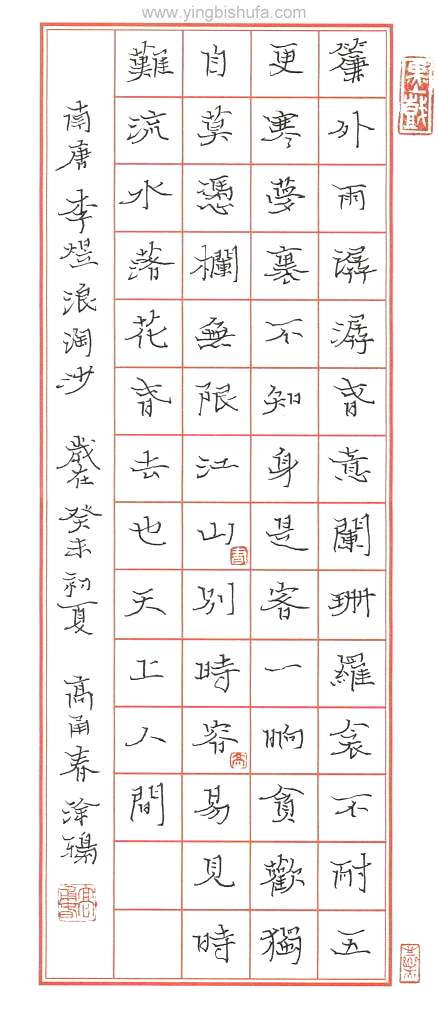 www.yingbishufa.com
簾外雨潺潺春意闌珊羅衾不耐五
更寒夢裏不知身是客一晌貪歡獨
自莫憑欄無限江山別時容易見時
難流水落花春去也天上人間
南唐李煜浪淘沙 歲在癸未初夏 高甬春涂鴉